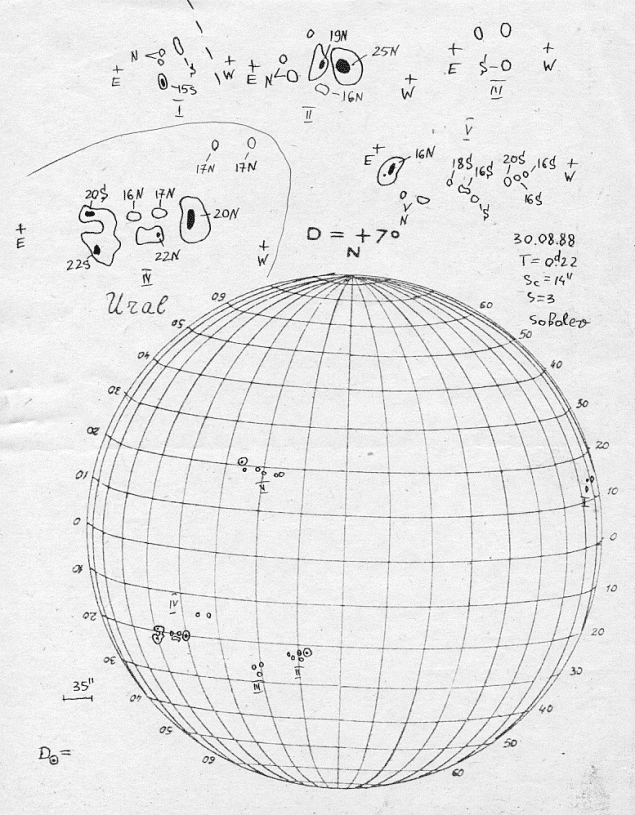 N S
+ E 15S + W
I
19N 25N
+ E N 16N + W
II
+ E S + W
III
17N 17N
20S 16N 17N 20N
+ E 22S 22N + W
IV
V
E + 16N 18S 16S 20S 16S + W
V N S 16S
D = +7°
N
30.08.88
T = 0ᵈ22
Sc = 14"
S = 3
Sobolev
Ural
60 60
50 50
40 40
30 30
20 20
10 10
0 0
10 10
20 20
30 30
40 40
50 50
60 60
V
I
IV
III
II
35"
D⊙ =